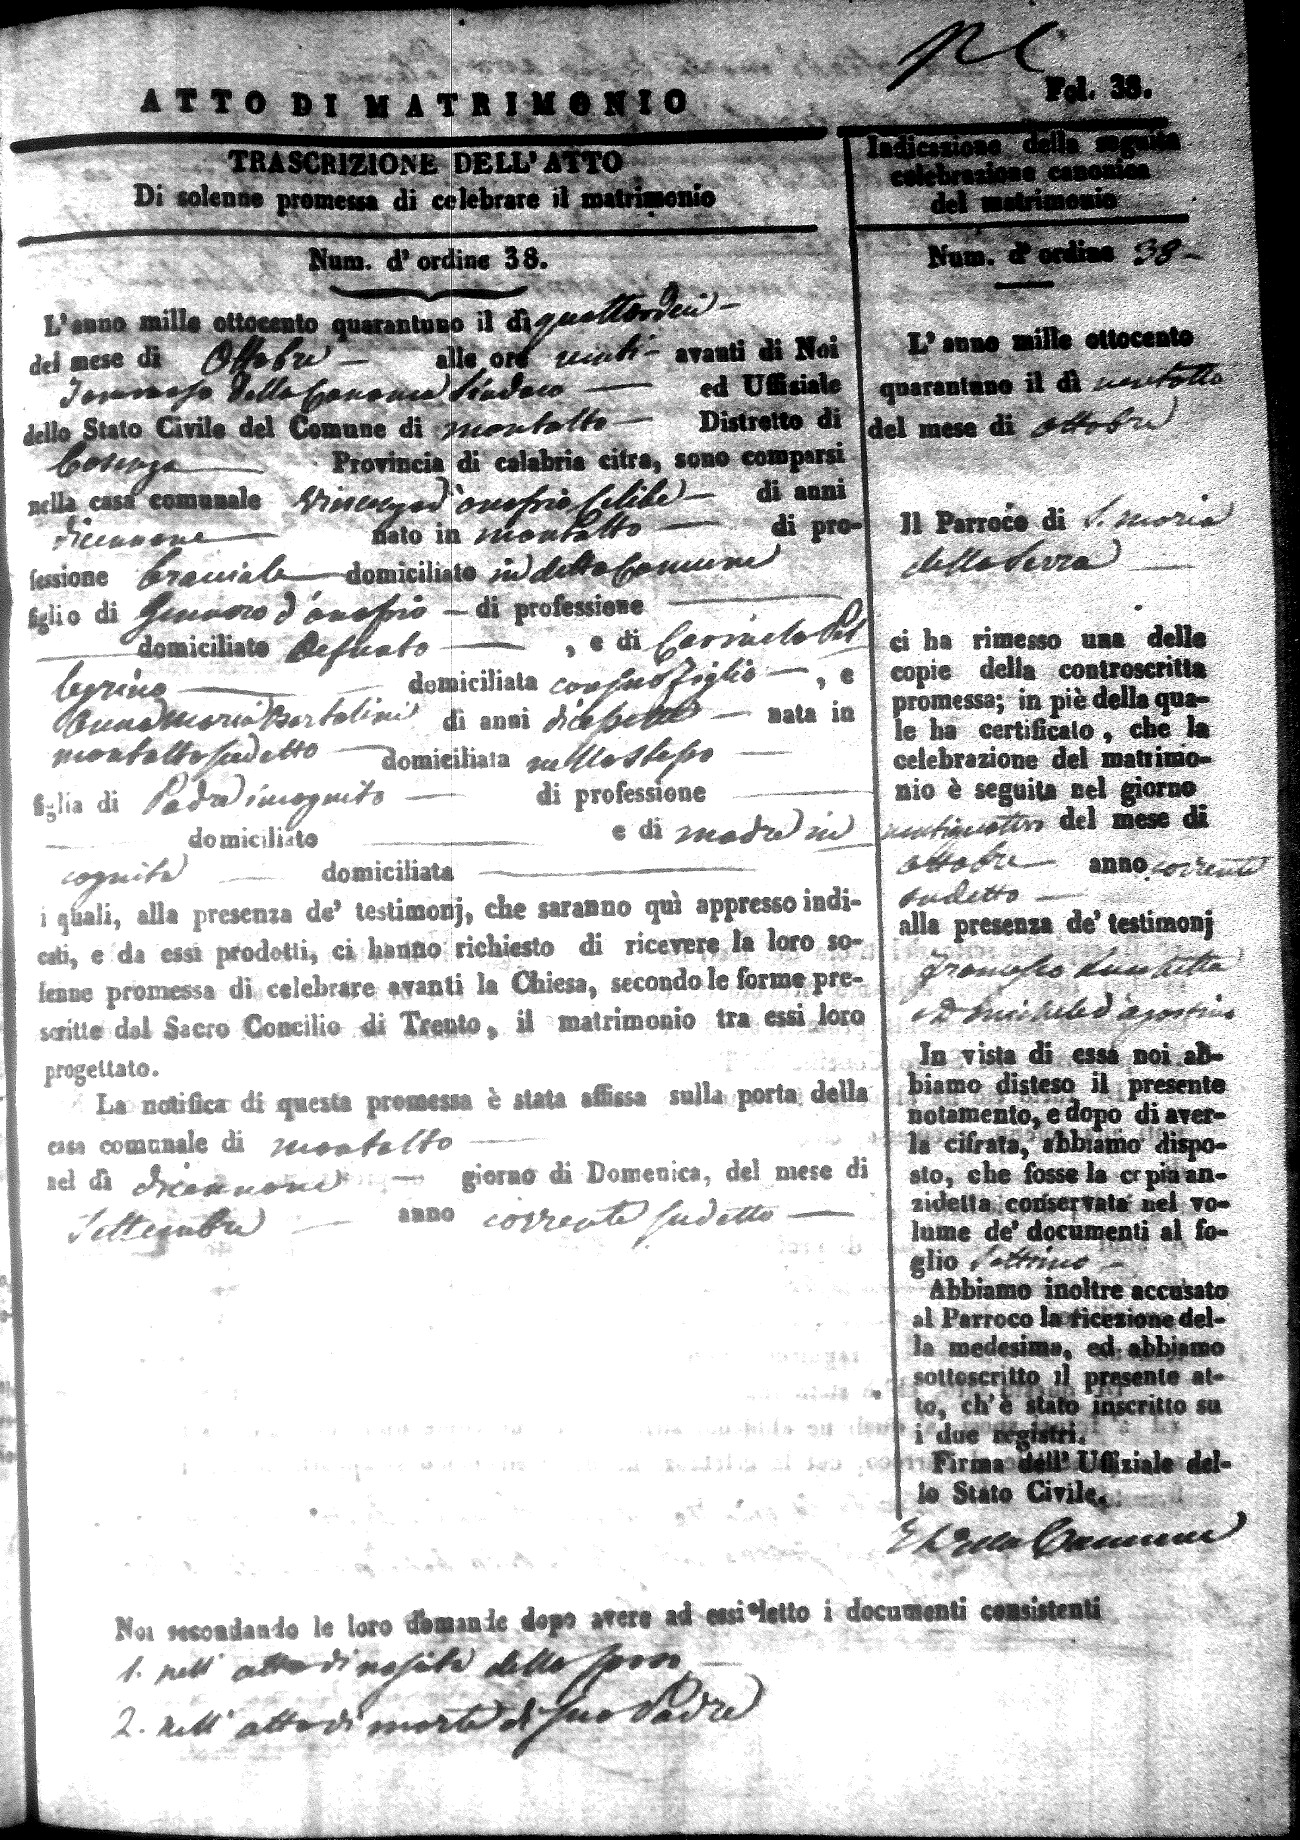 Fol. 38.
ATTO DI MATRIMONIO
TRASCRIZIONE DELL' ATTO
Di solenne promessa di celebrare il matrimonio
Num. d' ordine 38.
L'anno mille ottocento quarantuno il dì quattordici
del mese di Ottobre alle ore venti avanti di Noi
Tommaso Della Cananea Sindaco ed Uffiziale
dello Stato Civile del Comune di montalto Distretto di
Cosenza Provincia di calabria citra, sono comparsi
nella casa comunale Vincenzo d'onofrio Celibe di anni
dicennove nato in montalto di pro-
fessione Craniale domiciliato in detto Comune
figlio di Gennaro d'onofrio di professione
domiciliato Defunto , e di Carmela Pel
legrino domiciliata con suo figlio , e
Anna Maria Bartolini di anni dicesette nata in
montalto sudetto domiciliata nello stesso
figlia di Padre incognito di professione
domiciliato e di madre in
cognita domiciliata
i quali, alla presenza de' testimonj, che saranno quì appresso indi-
cati, e da essi prodotti, ci hanno richiesto di ricevere la loro so-
lenne promessa di celebrare avanti la Chiesa, secondo le forme pre-
scritte dal Sacro Concilio di Trento, il matrimonio tra essi loro
progettato.
La notifica di questa promessa è stata affissa sulla porta della
casa comunale di montalto
nel dì dicennove giorno di Domenica, del mese di
Settembre anno corrente sudetto
Indicazione della seguita
celebrazione canonica
del matrimonio
Num. d' ordine 38
L' anno mille ottocento
quarantuno il dì ventotto
del mese di ottobre
Il Parroco di S. maria
della Serra
ci ha rimesso una delle
copie della controscritta
promessa; in piè della qua-
le ha certificato, che la
celebrazione del matrimo-
nio è seguita nel giorno
ventiquattro del mese di
ottobre anno corrente
sudetto
alla presenza de' testimonj
Francesco
e D. Michele d'agostino
In vista di essa noi ab-
biamo disteso il presente
notamento, e dopo di aver-
la cifrata, abbiamo dispo-
sto, che fosse la copia an-
zidetta conservata nel vo-
lume de' documenti al fo-
glio Settimo
Abbiamo inoltre accusato
al Parroco la ricezione del-
la medesima, ed abbiamo
sottoscritto il presente at-
to, ch'è stato inscritto su
i due registri.
Firma dell' Uffiziale del-
lo Stato Civile.
Noi secondando le loro domande dopo avere ad essi letto i documenti consistenti
1. nell' atto di nascita dello sposo
2. nell' atto di morte di suo Padre